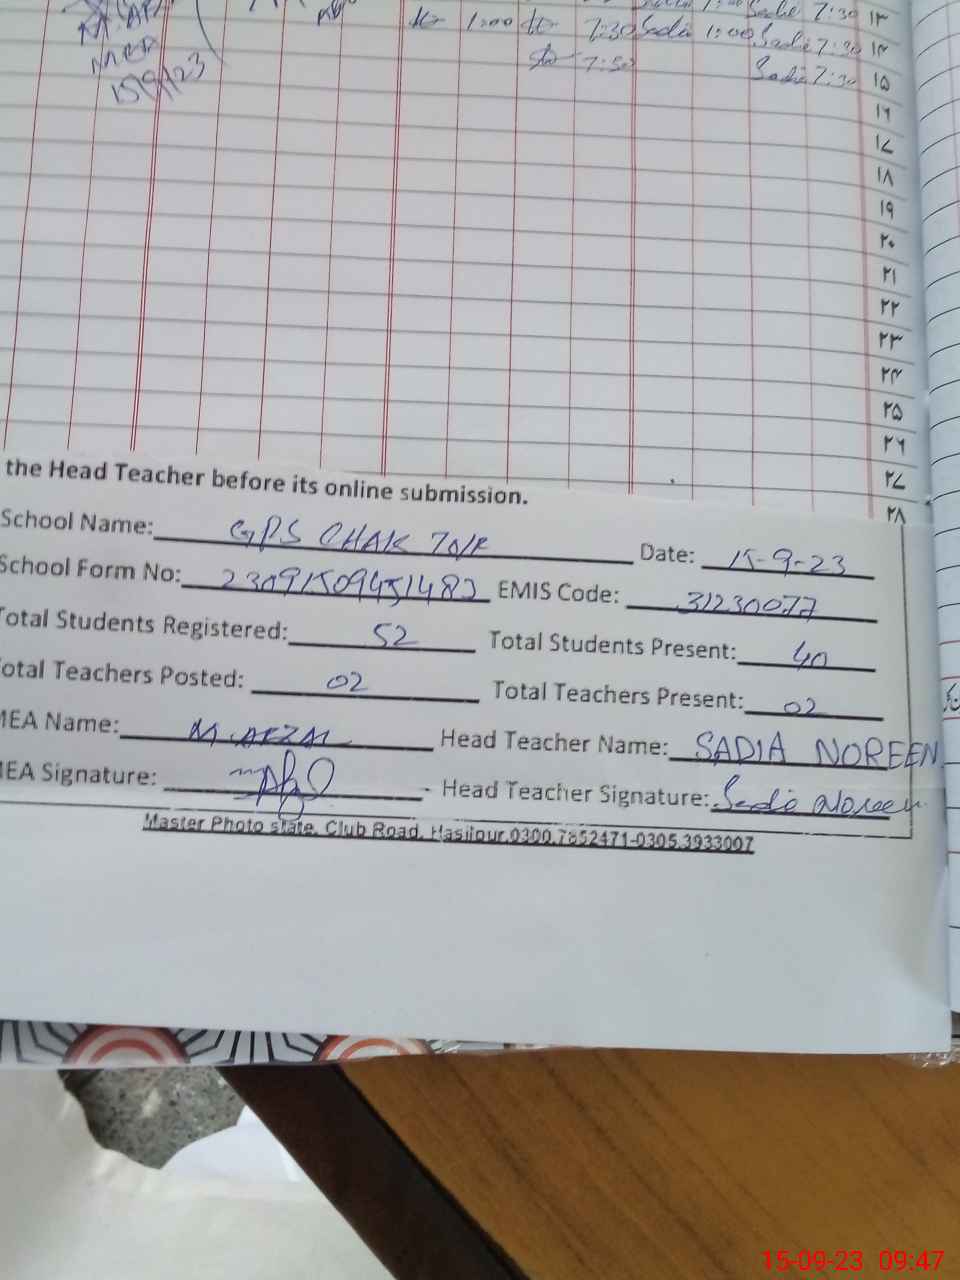 Sadie 7:30 ۱۳
1:00 7:30 Sadia 1:00 Sadie 7:30 ۱۴
7:50 Sadie 7:30 ۱۵
MEA
15/9/23
۱۶
۱۷
۱۸
۱۹
۲۰
۲۱
۲۲
۲۳
۲۴
۲۵
۲۶
۲۷
۲۸
the Head Teacher before its online submission.
School Name: GPS CHAK 70/R Date: 15-9-23
School Form No: 23091509451482 EMIS Code: 31230077
Total Students Registered: 52 Total Students Present: 40
Total Teachers Posted: 02 Total Teachers Present: 02
MEA Name: M. AFZAL Head Teacher Name: SADIA NOREEN
MEA Signature: Head Teacher Signature: Sadia Noreen
Master Photo state, Club Road, Hasilpur.0300.7852471-0305.3933007
15-09-23 09:47